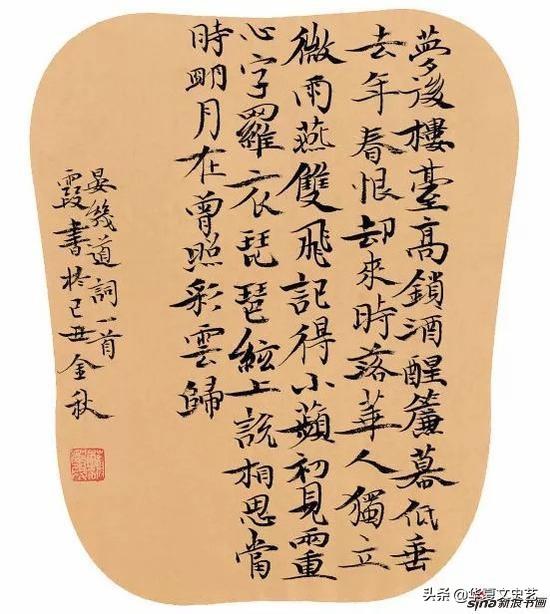 夢後樓臺高鎖酒醒簾幕低垂
去年春恨却來時落華人獨立
微雨燕雙飛記得小蘋初見兩重
心字羅衣琵琶絃上説相思當
時明月在曾照彩雲歸
晏幾道詞一首
霞書於己丑金秋
头条@华夏文史艺
sina新浪书画